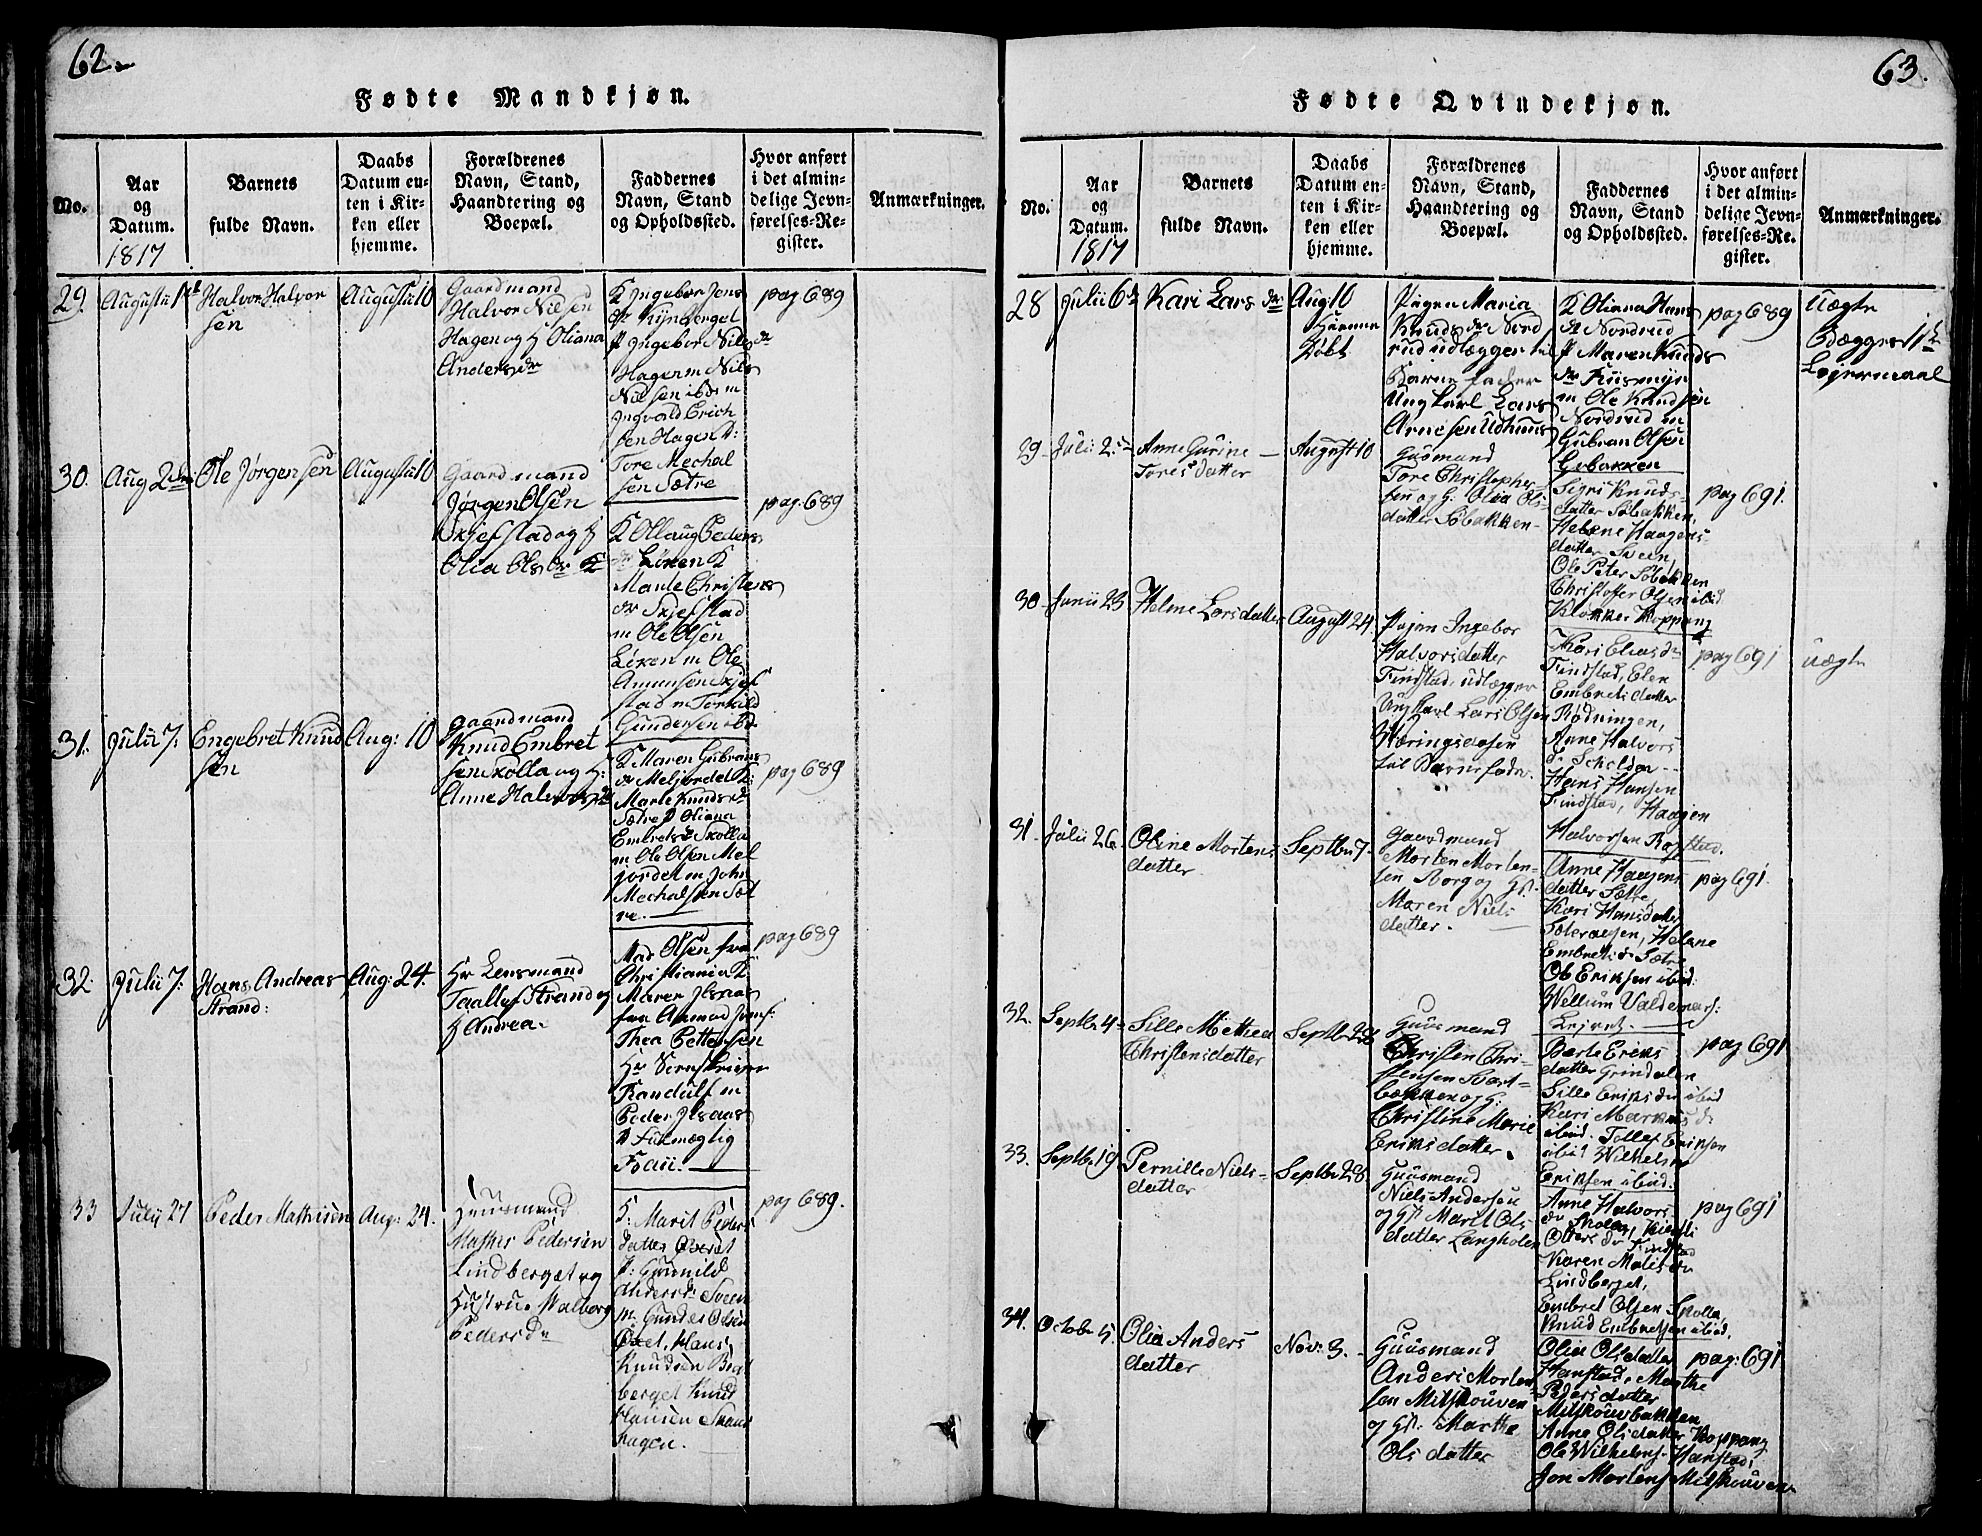 62.
Fødte Mandkjøn.
No.
Aar
og
Datum.
1817
Barnets
fulde Navn.
Daabs
Datum en-
ten i Kir-
ken eller
hjemme.
Forældrenes
Navn, Stand,
Haandtering og
Boepæl.
Faddernes
Navn, Stand
og Opholdssted.
Hvor anført
i det almin-
delige Jevn-
førelses-Re-
gister.
Anmærkninger.
29.
Halvor Halvor
sen
August 10
Gaardmand
Halvor Nielsen
Hagen og H Oliana
Anders dr
K Ingebor Jens
P Ingebor Nils dr
Hagen m Nils
Nielsen ibd m
Ingvald Erich
sen Hagen
Tore Mechal
sen Sætre
pag 689
30.
Aug 2den
Ole Jørgensen
August 10
Gaardmand
Jørgen Olsen
Skjefstad og H
Olia Ols dr
K Ollaug Peders
dr Løken K
Marte Christens
dr Skjefstad
m Ole Olsen
Løken m Ole
Amunsen Skjef
stad m Torkild
Gundersen ibd
pag. 689
31.
Julii 7.
Engebret Knud
sen
Aug: 10
Gaardmand
Knud Embret
sen Skolla og H:
Anne Halvors dr
K Maren Gubrans
dr Meljordet
Marte Knuds dr
Sætre P Oliana
Embrets dr Skolla
m Ole Olsen Mel
jordet m John
Mechalsen Sæt
re.
pag 689
32.
Julii 7.
Hans Andreas
Strand.
Aug: 24.
Hr Lensmand
Taallef Strand og
H Andrea.
Mad Olsen fra
Christiania K:
Thea Pettersen
Hr Sorenskriver
Randulf m
Peder
Fuldmægtig
Fau.
pag 689
33
Julii 27
Peder Mathisen
Aug: 24.
Huusmand
Mathis Pedersen
Lindberget og
Hustrue Walborg
Peders dr
K: Marit Peders
datter Øvret
P: Gunnild
Anders dr Sveen
m. Gunder Olsen
Øvret, Hans
Knudsen Berg
berget Knud
Hansen
hagen.
pag 689.
63.
Fødte Qvindekjøn.
No.
Aar
og
Datum.
1817
Barnets
fulde Navn.
Daabs
Datum en-
ten i Kir-
ken eller
hjemme.
Forældrenes
Navn, Stand,
Haandtering og
Boepæl.
Faddernes
Navn, Stand
og Opholdssted.
Hvor anført
i det almin-
delige Jevn-
førelses-Re-
gister.
Anmærkninger.
28
Julii 6
Kari Lars dr
Aug 10
Hiemme
Døbt
Pigen Maria
Knuds dr Nord
rud udlægger til
Barne fader
Ung karl Lars
Arnesen Udhuus
K Oliana Hans
dr Nordrud
P Maren Knuds
dr
m Ole Knudsen
Nordrud m
Gubran Olsen
Gubakken
pag 689
Uægte
Lejermaal
29
Julii 2
Anne Gurine
Tores datter
August 10
Gaasmand
Tore Christopher-
sen og H: Olia Ols-
datter Søbakken
Sigri Knuds-
datter Søbakken,
Helene Haagens-
datter Sveen,
Ole Peter Søbakken
Christoffer Olsen ibid
Klokker Koppang
pag 691.
30
Junii 23
Helene Larsdatter
August 24.
Pigen Ingebor
Halvorsdatter
Findstad, udlægger
Ungkarl Lars Olsen
Wæringsaasen
til Barnefader.
Kari Elias dr
Findstad, Elen
Embrets datter
Rødningen,
Anne Halvors
dr
Hans Hansen
Findstad, Haagen
Halvorsen
pag 691
Uægte
31.
Julii 26.
Oline Mortens
datter
Septbr 7.
Gaardmand
Morten Morten-
sen Borg og Hst.
Maren Niels
datter.
Anne Haagens
datter Sætre,
Kari Hansdatter
Helene
Embrets dr Sætre
Ole Eriksen ibid.
Wellum Valdemars:
pag 691.
32.
Septbr 4
Sille Mathea
Christensdatter
Septbr 28
Huusmand
Christen Chri-
stensen Svart-
bækken og H:
Christine Marie
Eriksdatter.
Berte Eriks
datter Grindalen
Sille Eriks dr ibid
Kari Markus dr
ibid. Tollef Eriksen
ibid Wilhelm
Eriksen ibid.
pag 691
33.
Septbr 19
Pernille Niels-
datter
Septbr 28.
Huusmand
Niels Andersen
og Hst. Marit Ols
datter Langholen
Anne Halvors
dr Skolla, Kirsti
Otters dr Findstad
Karen Mathis dr
Lindberget,
Embret Olsen Skolla,
Knud Embretsen ibid.
pag 691
34.
Octobr 5.
Olia Anders
datter
Nov. 3.
Huusmand
Anders Morten
sen Mitskouven
og Hst. Marthe
Ols datter
Olia Olsdatter
Hanstad, Marthe
Pedersdatter
Mitskouvbakken
Anne Olsdatter Koppang
Ole Wilhelms: Hanstad,
Jon Mortens: Mitskouven
pag: 691